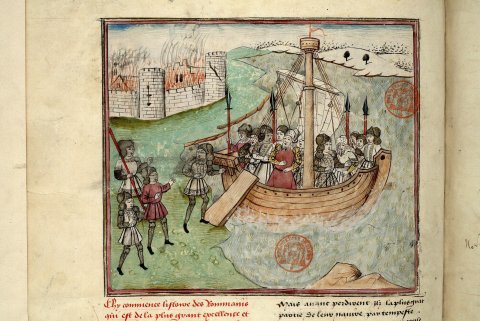 Chy commence listoire des Rommains
qui est de la plus grant excellence et
Mais auant perdirent ilz la plus grant
partie de leur nauire par tempeste